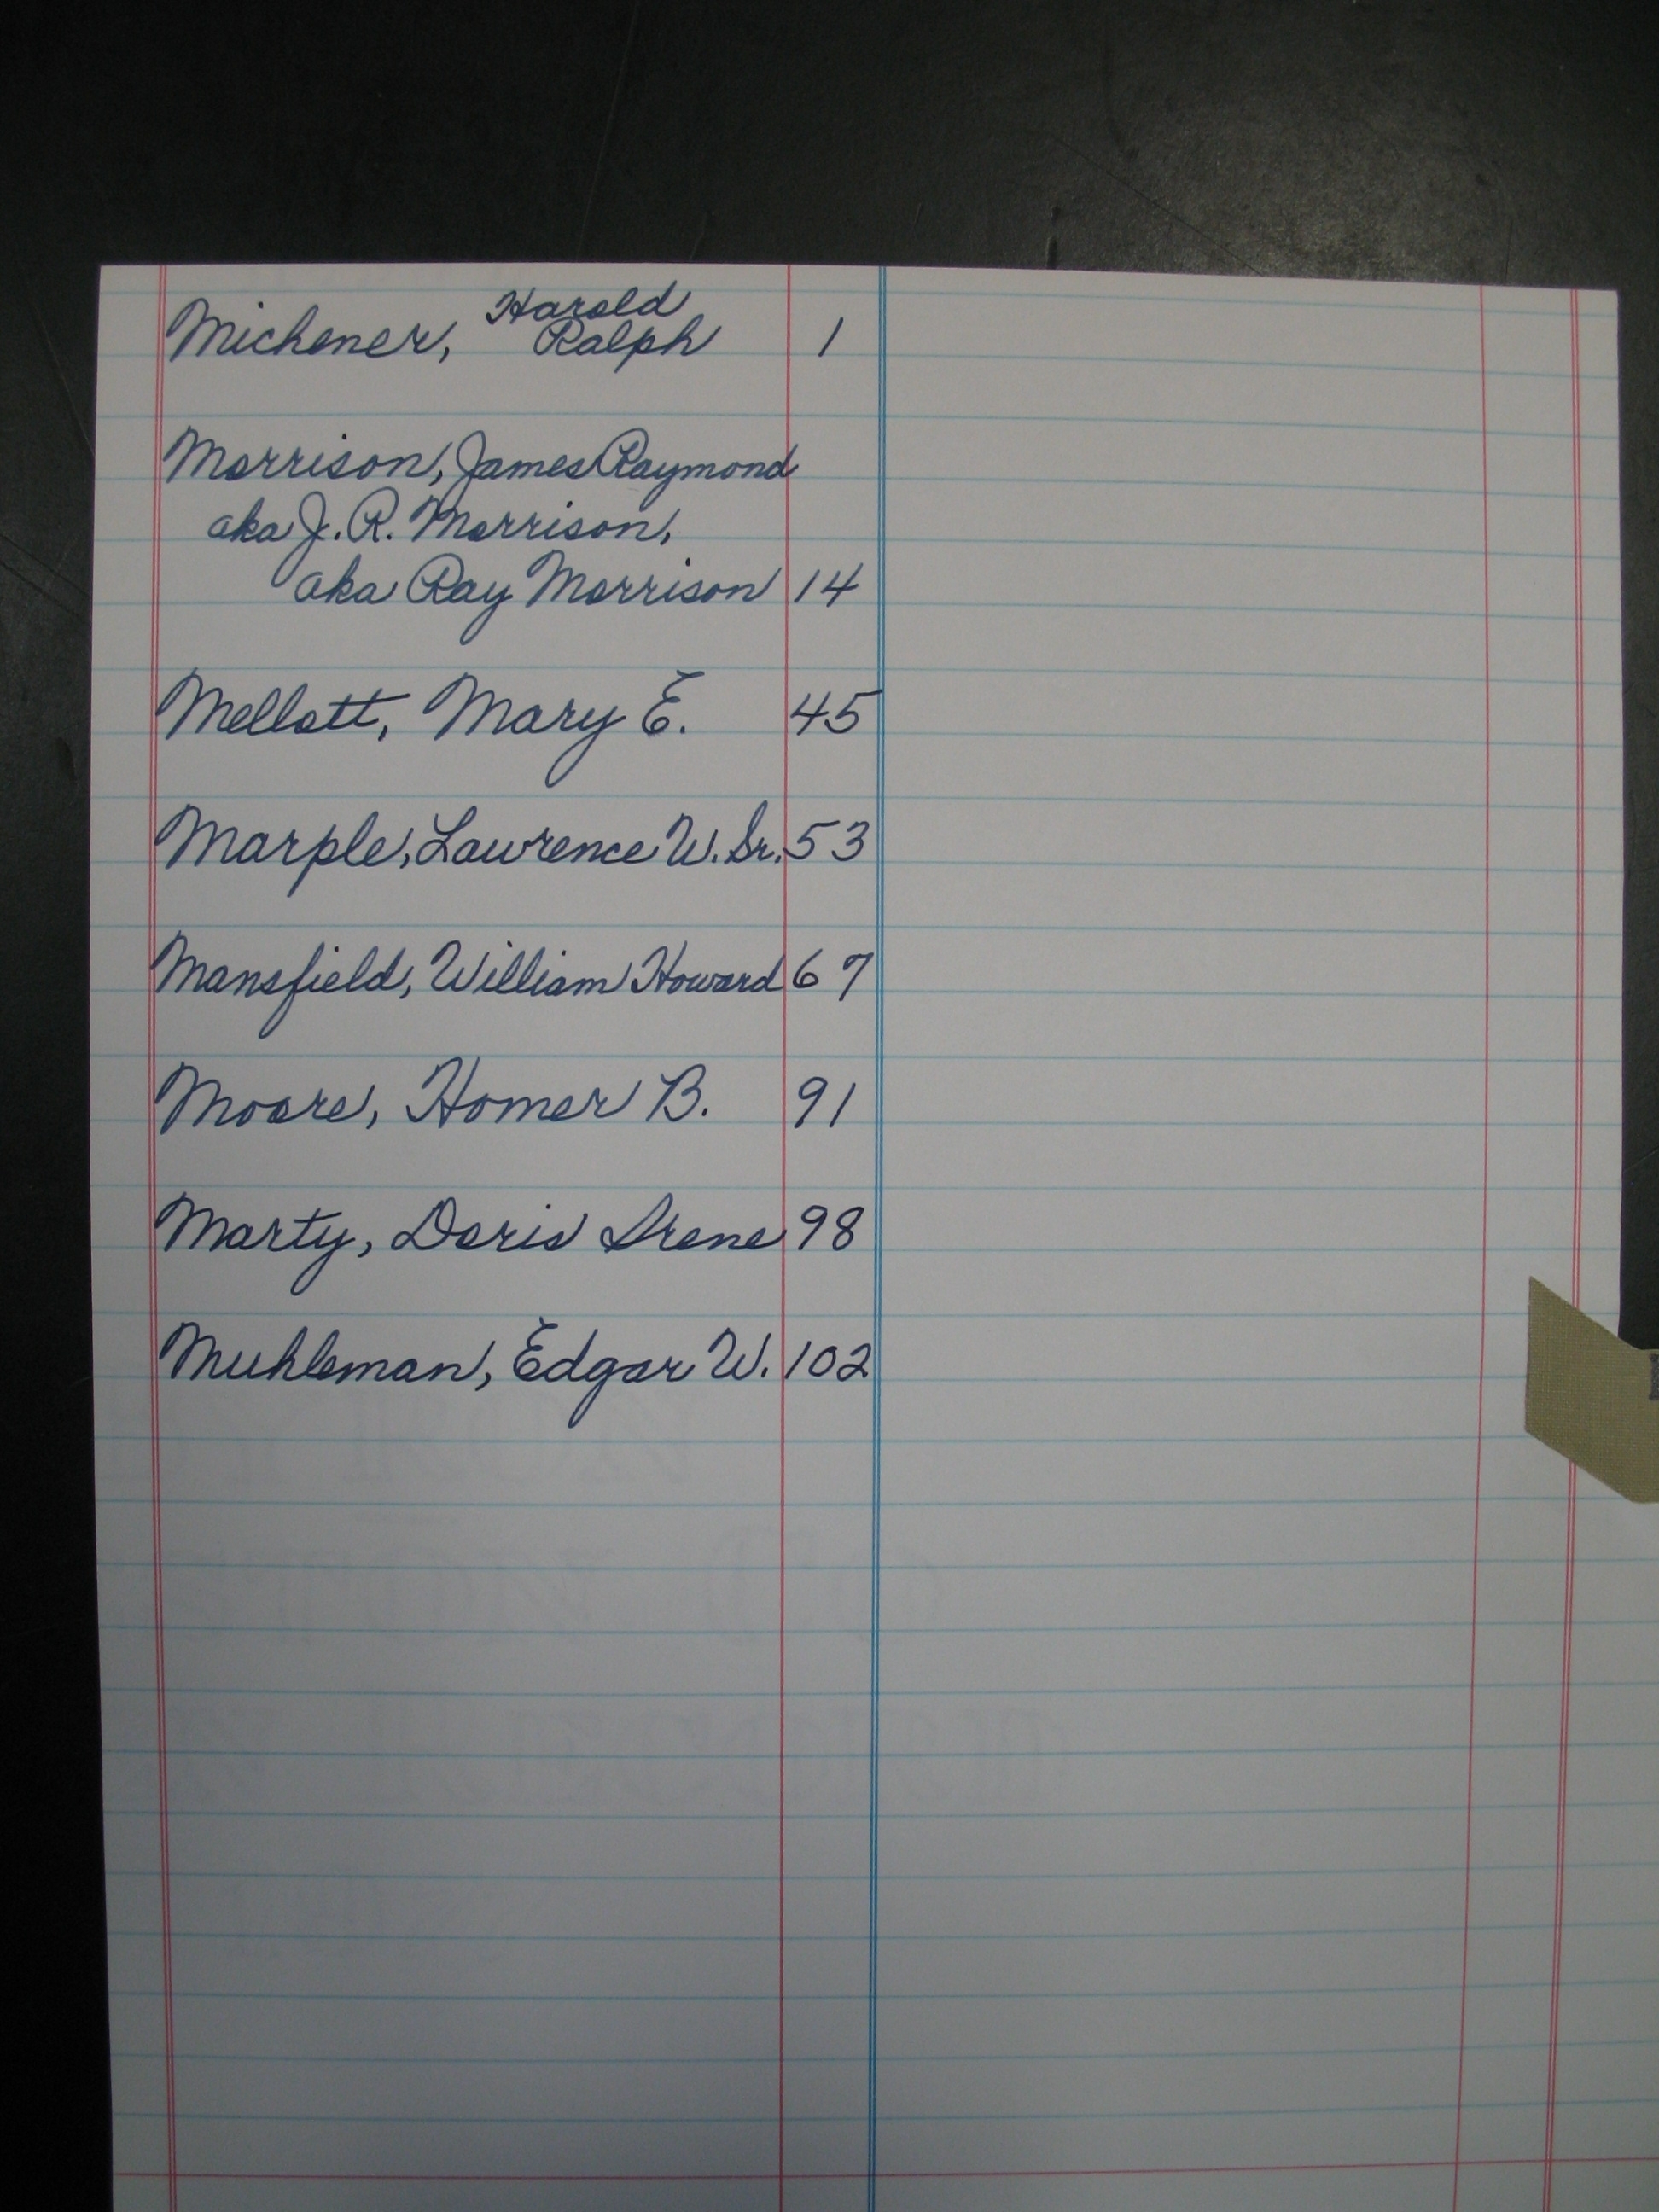 Michener, Harold Ralph 1
Morrison, James Raymond
aka J. R. Morrison,
aka Ray Morrison 14
Mellott, Mary E. 45
Marple, Lawrence W. Sr. 53
Mansfield, William Howard 67
Moore, Homer B. 91
Marty, Doris Irene 98
Muhleman, Edgar W. 102